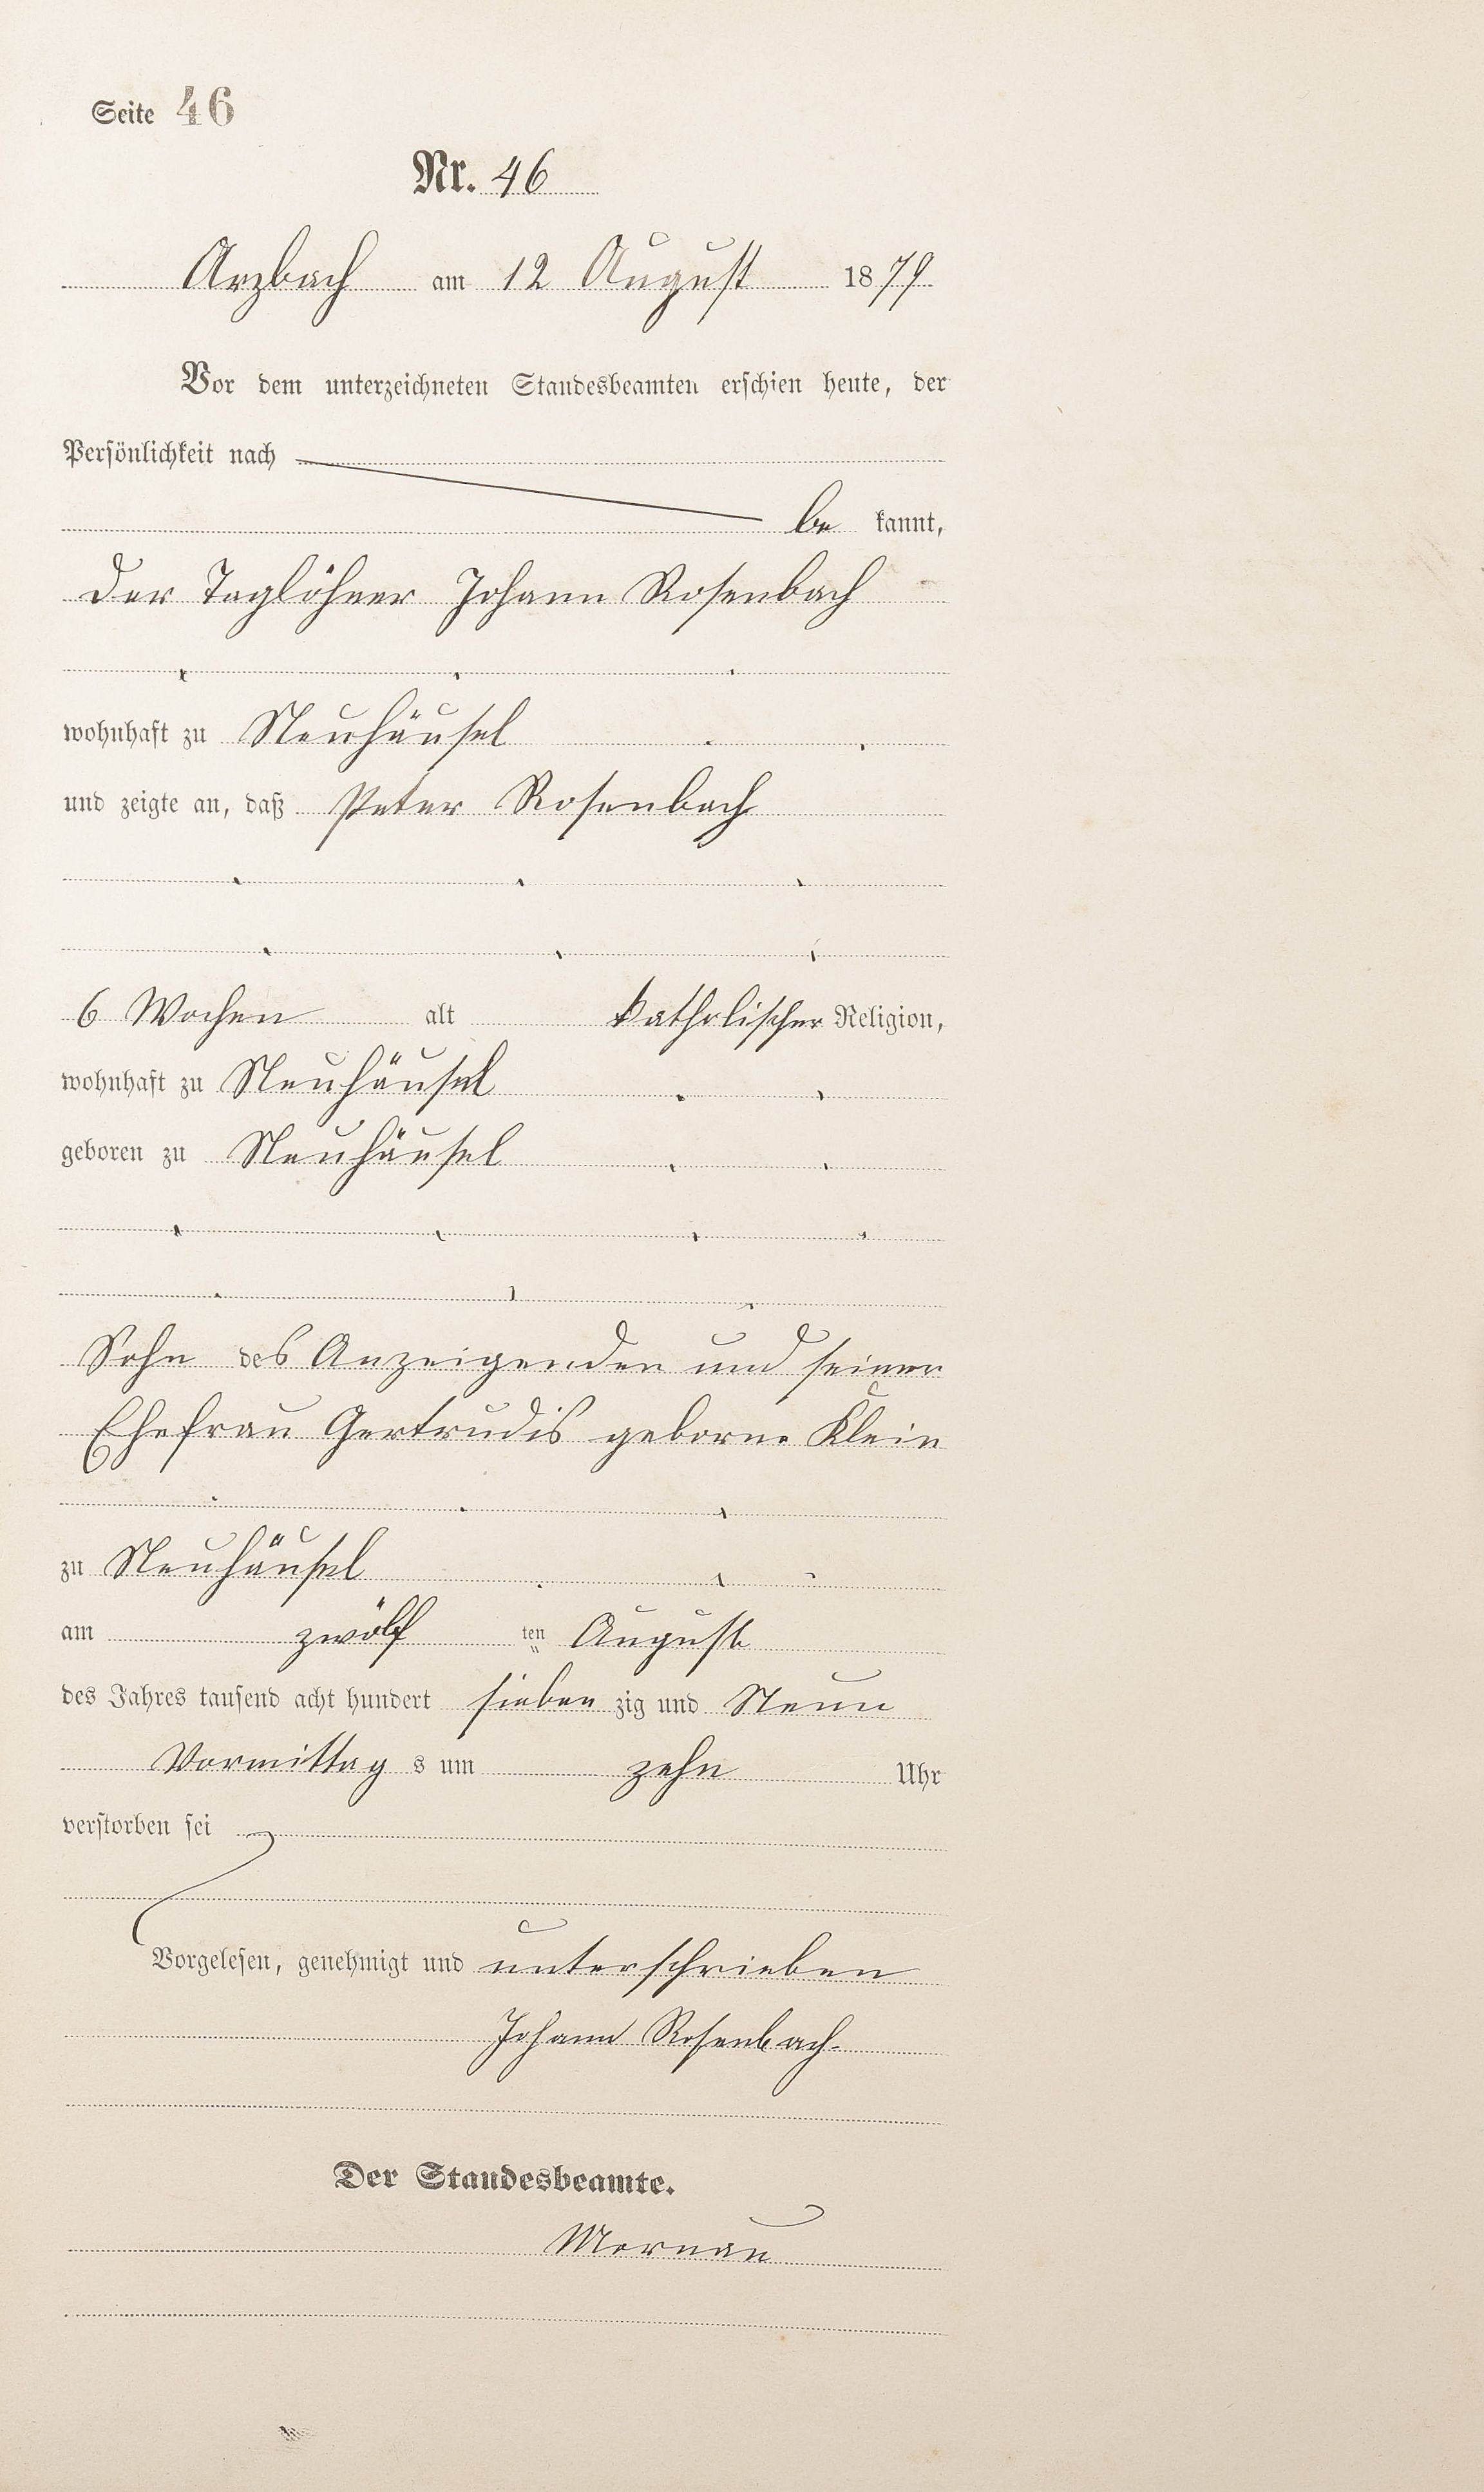 Seite 46
Nr. 46
Arzbach am 12 August 1879
Vor dem unterzeichneten Standesbeamten erschien heute, der
Persönlichkeit nach
be kannt,
der Taglöhner Johann Rosenbach
wohnhaft zu Neuhäusel
und zeigte an, daß Peter Rosenbach
6 Wochen alt katholischer Religion,
wohnhaft zu Neuhäusel
geboren zu Neuhäusel
Sohn des Anzeigenden und seiner
Ehefrau Gertrudis geborne Klein
zu Neuhäusel
am zwölf ten August
des Jahres tausend acht hundert sieben zig und Neun
Vormittag s um zehn Uhr
verstorben sei
Vorgelesen, genehmigt und unterschrieben
Johann Rosenbach.
Der Standesbeamte.
Mornau